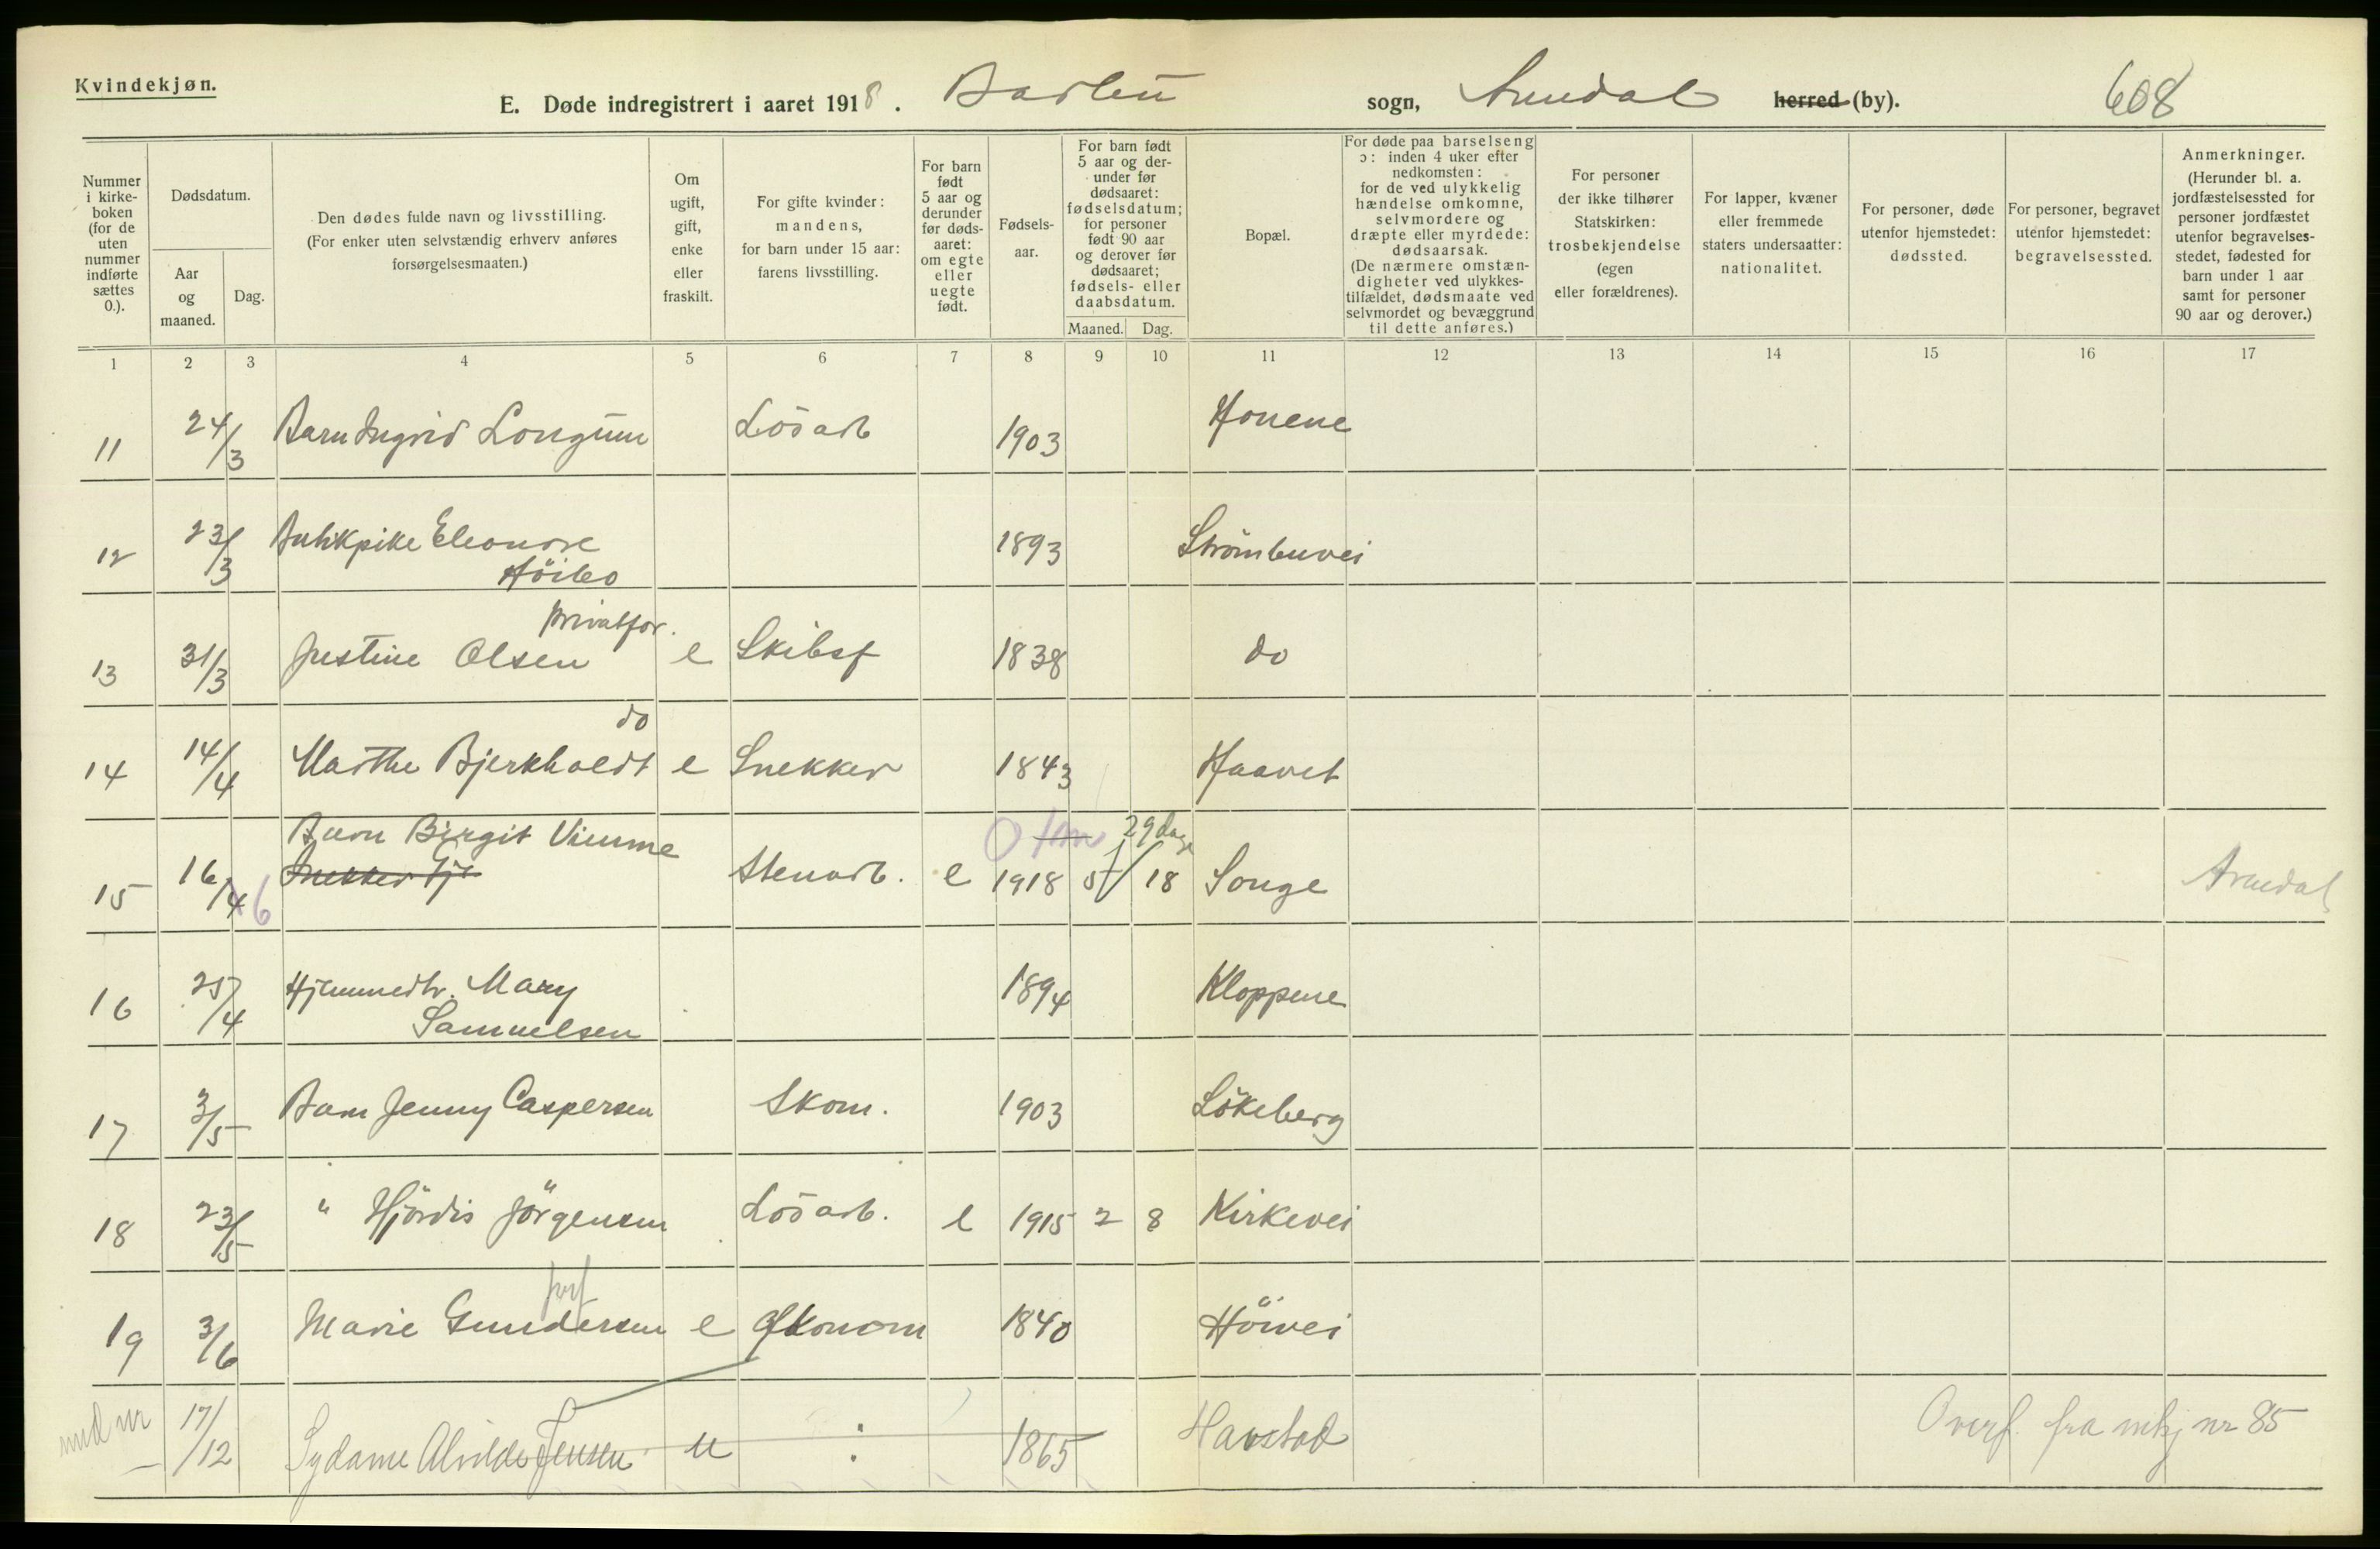 Kvindekjøn.
E. Døde indregistrert i aaret 1918. Barbu sogn, Arendal herred (by). 608
Nummer i kirke-boken (for de uten nummer indførte sættes 0.).
Dødsdatum.
Aar og maaned.
Dag.
Den dødes fulde navn og livsstilling. (For enker uten selvstændig erhverv anføres forsørgelsesmaaten.)
Om ugift, gift, enke eller fraskilt.
For gifte kvinder: mandens, for barn under 15 aar: farens livsstilling.
For barn født 5 aar og derunder før døds-aaret: om egte eller uegte født.
Fødsels-aar.
For barn født 5 aar og der-under før dødsaaret: fødselsdatum; for personer født 90 aar og derover før dødsaaret; fødsels- eller daabsdatum.
Maaned. Dag.
Bopæl.
For døde paa barselseng ɔ: inden 4 uker efter nedkomsten: for de ved ulykkelig hændelse omkomne, selvmordere og dræpte eller myrdede: dødsaarsak. (De nærmere omstæn-digheter ved ulykkes-tilfældet, dødsmaate ved selvmordet og bevæggrund til dette anføres.)
For personer der ikke tilhører Statskirken: trosbekjendelse (egen eller forældrenes).
For lapper, kvæner eller fremmede staters undersaatter: nationalitet.
For personer, døde utenfor hjemstedet: dødssted.
For personer, begravet utenfor hjemstedet: begravelsessted.
Anmerkninger. (Herunder bl. a. jordfæstelsessted for personer jordfæstet utenfor begravelses-stedet, fødested for barn under 1 aar samt for personer 90 aar og derover.)
1 2 3 4 5 6 7 8 9 10 11 12 13 14 15 16 17
11 24/3 Barn Ingrid Longum Lösarb 1903 Honene
12 23/3 Butikpike Eleonore Höibo 1893 Strömbuvei
privatfor.
13 31/3 Justine Olsen e Skibsf 1838 do
do
14 14/4 Marthe Bjerkholdt e Snekker 1843 Haavet
Barn Birgit Vimme 29 dage
15 16/4 6 Snekker Stenarb. e 1918 5/18 Songe Arendal
16 25/4 Hjemmedtr. Mary Samuelsen 1894 Kloppene
17 3/5 Barn Jenny Caspersen Skom. 1903 Lökeberg
18 23/5 " Hjördis Jörgensen Lösarb. e 1915 2 8 Kirkevei
19 3/6 Marie Gundersen e Økonom 1840 Höivei
17/12 Sydame Alvilde Jensen u : 1865 Havstad Overf. fra mkj nr 85